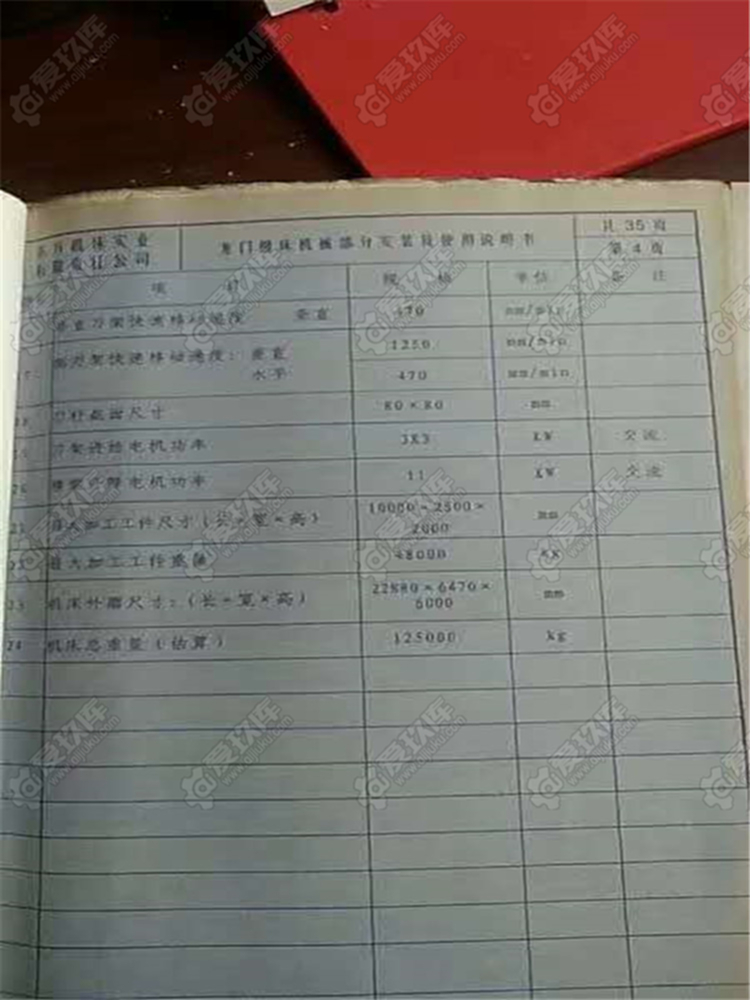 机床实业
有限责任公司
龙门刨床机械部分安装及使用说明书
共 35 页
第 4 页
项 目 规 格 单位 备 注
垂直刀架快速移动速度 垂直 470 mm/min
17 侧刀架快速移动速度：垂直 1250 mm/min
水平 470 mm/min
18 刀杆截面尺寸 80×80 mm
刀架进给电机功率 3X3 KW 交流
横梁升降电机功率 11 KW 交流
21 最大加工工件尺寸（长×宽×高） 10000×2500×2000 mm
22 最大加工工件重量 48000 kg
23 机床外廓尺寸：（长×宽×高） 22880×6470×6000 mm
24 机床总重量（估算） 125000 kg
爱玖库
www.aijiuku.com